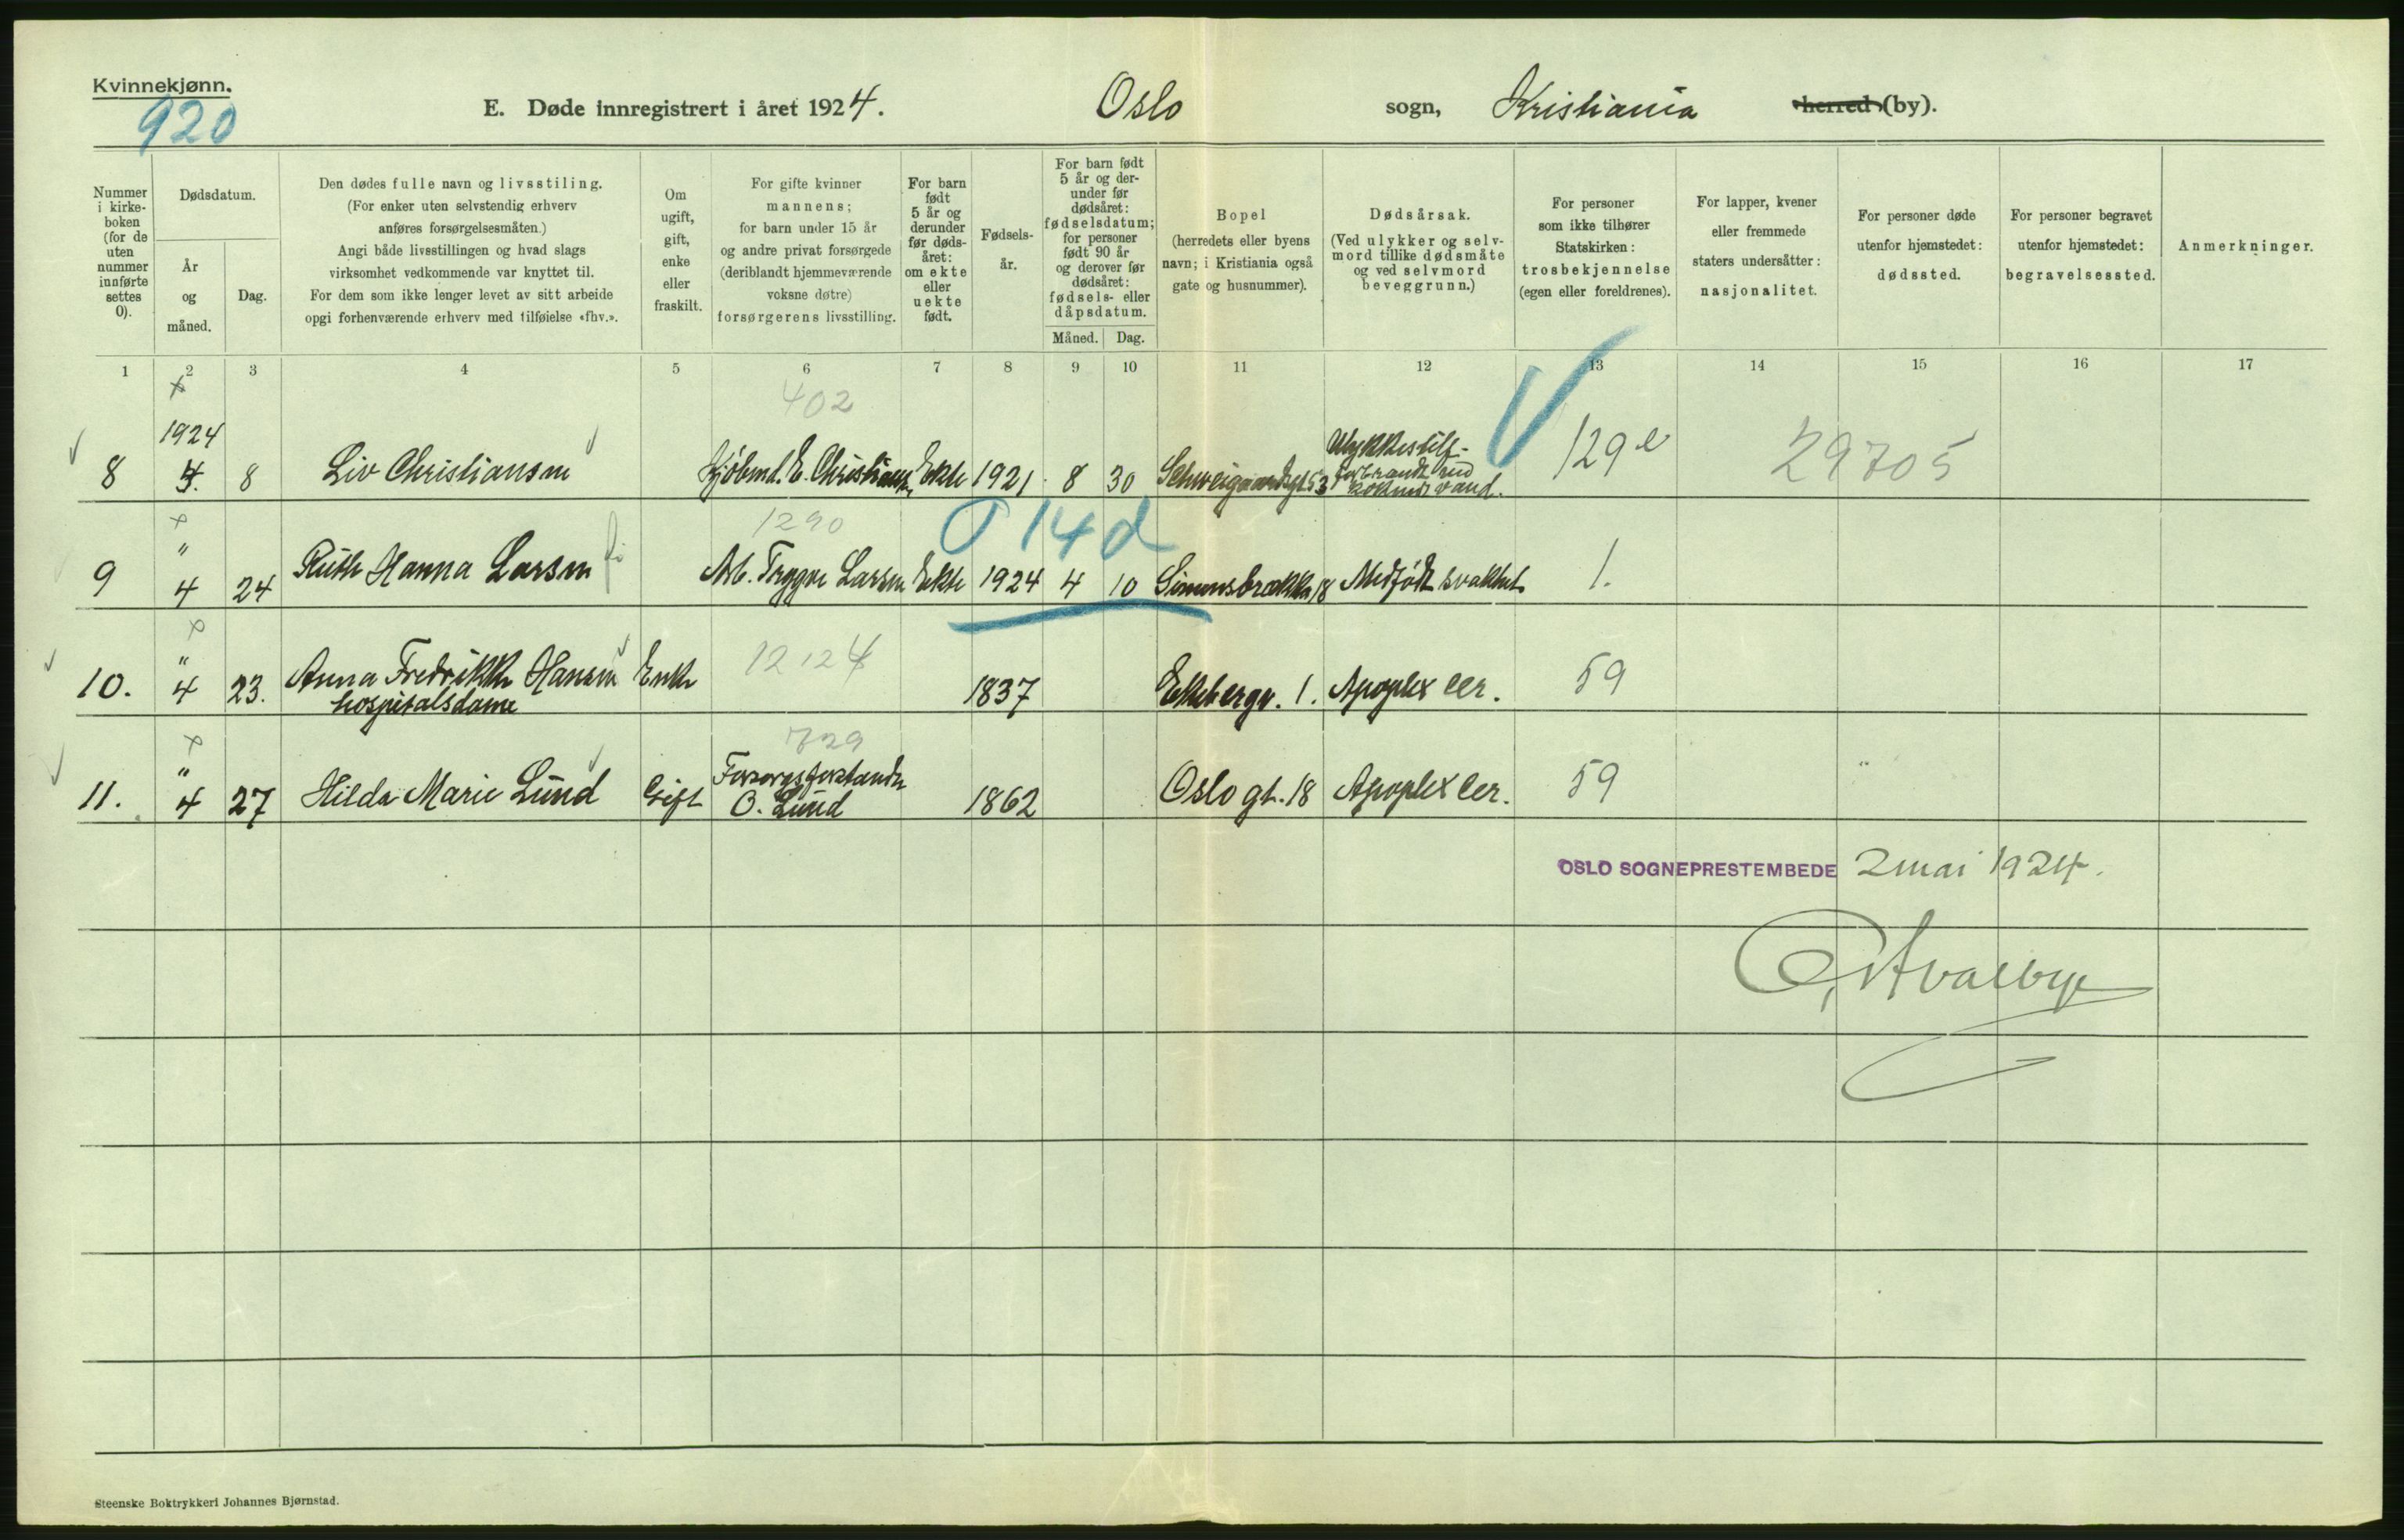 Kvinnekjønn.
920
E. Døde innregistrert i året 1924. Oslo sogn, Kristiania herred (by).
Nummer i kirkeboken (for de uten nummer innførte settes 0).
Dødsdatum.
År og måned.
Dag.
Den dødes fulle navn og livsstiling.
(For enker uten selvstendig erhverv
anføres forsørgelsesmåten.)
Angi både livsstillingen og hvad slags
virksomhet vedkommende var knyttet til.
For dem som ikke lenger levet av sitt arbeide
opgi forhenværende erhverv med tilføielse «fhv.».
Om ugift, gift, enke eller fraskilt.
For gifte kvinner
mannens;
for barn under 15 år
og andre privat forsørgede
(deriblandt hjemmeværende
voksne døtre)
forsørgerens livsstilling.
For barn født 5 år og derunder før dødsåret: om ekte eller uekte født.
Fødselsår.
For barn født 5 år og derunder før dødsåret: fødselsdatum; for personer født 90 år og derover før dødsåret: fødsels- eller dåpsdatum.
Måned. Dag.
Bopel
(herredets eller byens
navn; i Kristiania også
gate og husnummer).
Dødsårsak.
(Ved ulykker og selv-
mord tillike dødsmåte
og ved selvmord
beveggrunn.)
For personer
som ikke tilhører
Statskirken:
trosbekjennelse
(egen eller foreldrenes).
For lapper, kvener
eller fremmede
staters undersåtter:
nasjonalitet.
For personer døde
utenfor hjemstedet:
dødssted.
For personer begravet
utenfor hjemstedet:
begravelsessted.
Anmerkninger.
1 2 3 4 5 6 7 8 9 10 11 12 13 14 15 16 17
402
1924
8 4. 8 Liv Christiansen Kjøbmd. E. Christiansen Ekte 1921 8 30 Schweigaardsgt 53 Ulykkestilf- forbrandt ved kokende vand. 129 e 29705
1290
0 14 d
9 " 4 24 Ruth Hanna Larsen Arb. Trygve Larsen Ekte 1924 4 10 Simensbrækka 18 Medfødt svakhet 1.
12124
10. " 4 23. Anna Fredrikke Hansen Enke 1837 Ekebergv. 1. Apoplex cer. 59
hospitalsdame
729
11. " 4 27 Hilda Marie Lund Gift Forsorgsforstander O. Lund 1862 Oslo gt. 18 Apoplex cer. 59
OSLO SOGNEPRESTEMBEDE 2 mai 1924.
Steenske Boktrykkeri Johannes Bjørnstad.